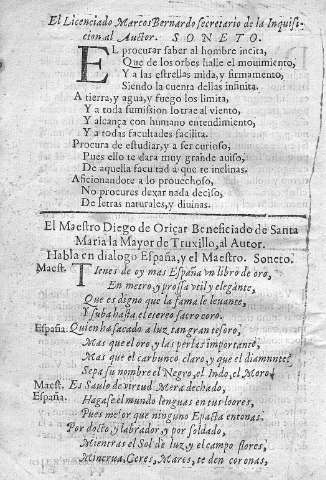 El Licenciado Marcos Bernardo secretario de la Inquisi-
cion al Auctor. SONETO.
EL procurar saber al hombre incita,
Que de los orbes halle el mouimiento,
Y a las estrellas mida, y firmamento,
Siendo la cuenta dellas infinita.
A tierra, y agua, y fuego los limita,
Y a toda sumission lo trae al viento,
Y alcança con humano entendimiento,
Y a todas facultades facilita.
Procura de estudiar, y a ser curioso,
Pues ello te dara muy grande auiso,
De aquella facultad a que te inclinas.
Aficionandote a lo prouechoso,
No procures dexar nada deciso,
De letras naturales, y diuinas.
El Maestro Diego de Oriçar Beneficiado de Santa
Maria la Mayor de Truxillo, al Autor.
Habla en dialogo España, y el Maestro. Soneto.
Maest. Tienes de oy mas España vn libro de oro,
En metro, y prossa vtil y elegante,
Que es digno que la fama le leuante,
Y suba hasta el etereo sacro coro.
España. Quien ha sacado a luz tan gran tesoro,
Mas que el oro, y las perlas importante,
Mas que el carbunco claro, y que el diamante,
Sepa su nombre el Negro, el Indo, el Moro.
Maest. Es Saulo de virtud Mera dechado,
España. Hagase el mundo lenguas en tus loores,
Pues mejor que ninguno Epacta entonas.
Por docto, y labrador, y por soldado,
Mientras el Sol de luz, y el campo flores,
Minerua, Ceres, Mares, te den coronas,